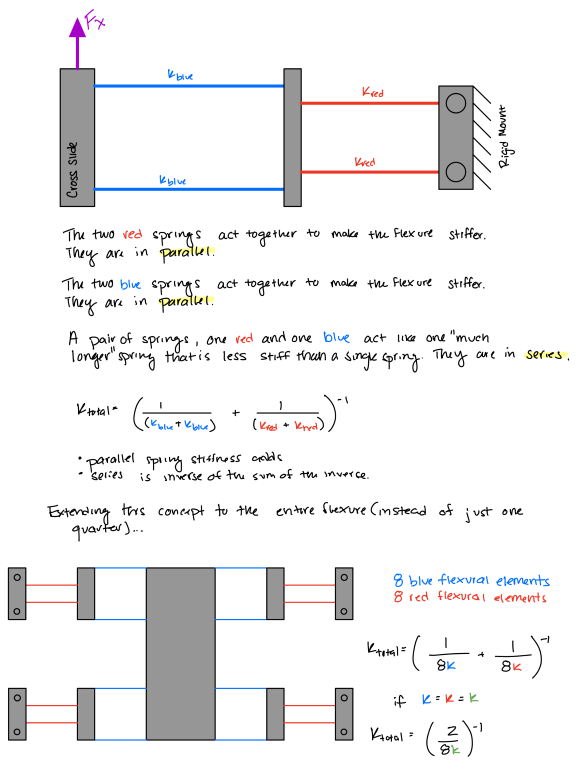 Fx
Kblue
Kred
Cross Slide
Rigid Mount
Kblue
Kred
The two red springs act together to make the flexure stiffer.
They are in parallel.
The two blue springs act together to make the flexure stiffer.
They are in parallel.
A pair of springs, one red and one blue act like one "much
longer" spring that is less stiff than a single spring. They are in series.
Ktotal = (1/(Kblue + Kblue) + 1/(Kred + Kred))^-1
• parallel spring stiffness adds
• series is inverse of the sum of the inverse.
Extending this concept to the entire flexure (instead of just one
quarter)...
8 blue flexural elements
8 red flexural elements
Ktotal = (1/8K + 1/8K)^-1
if K = K = K
Ktotal = (2/8K)^-1